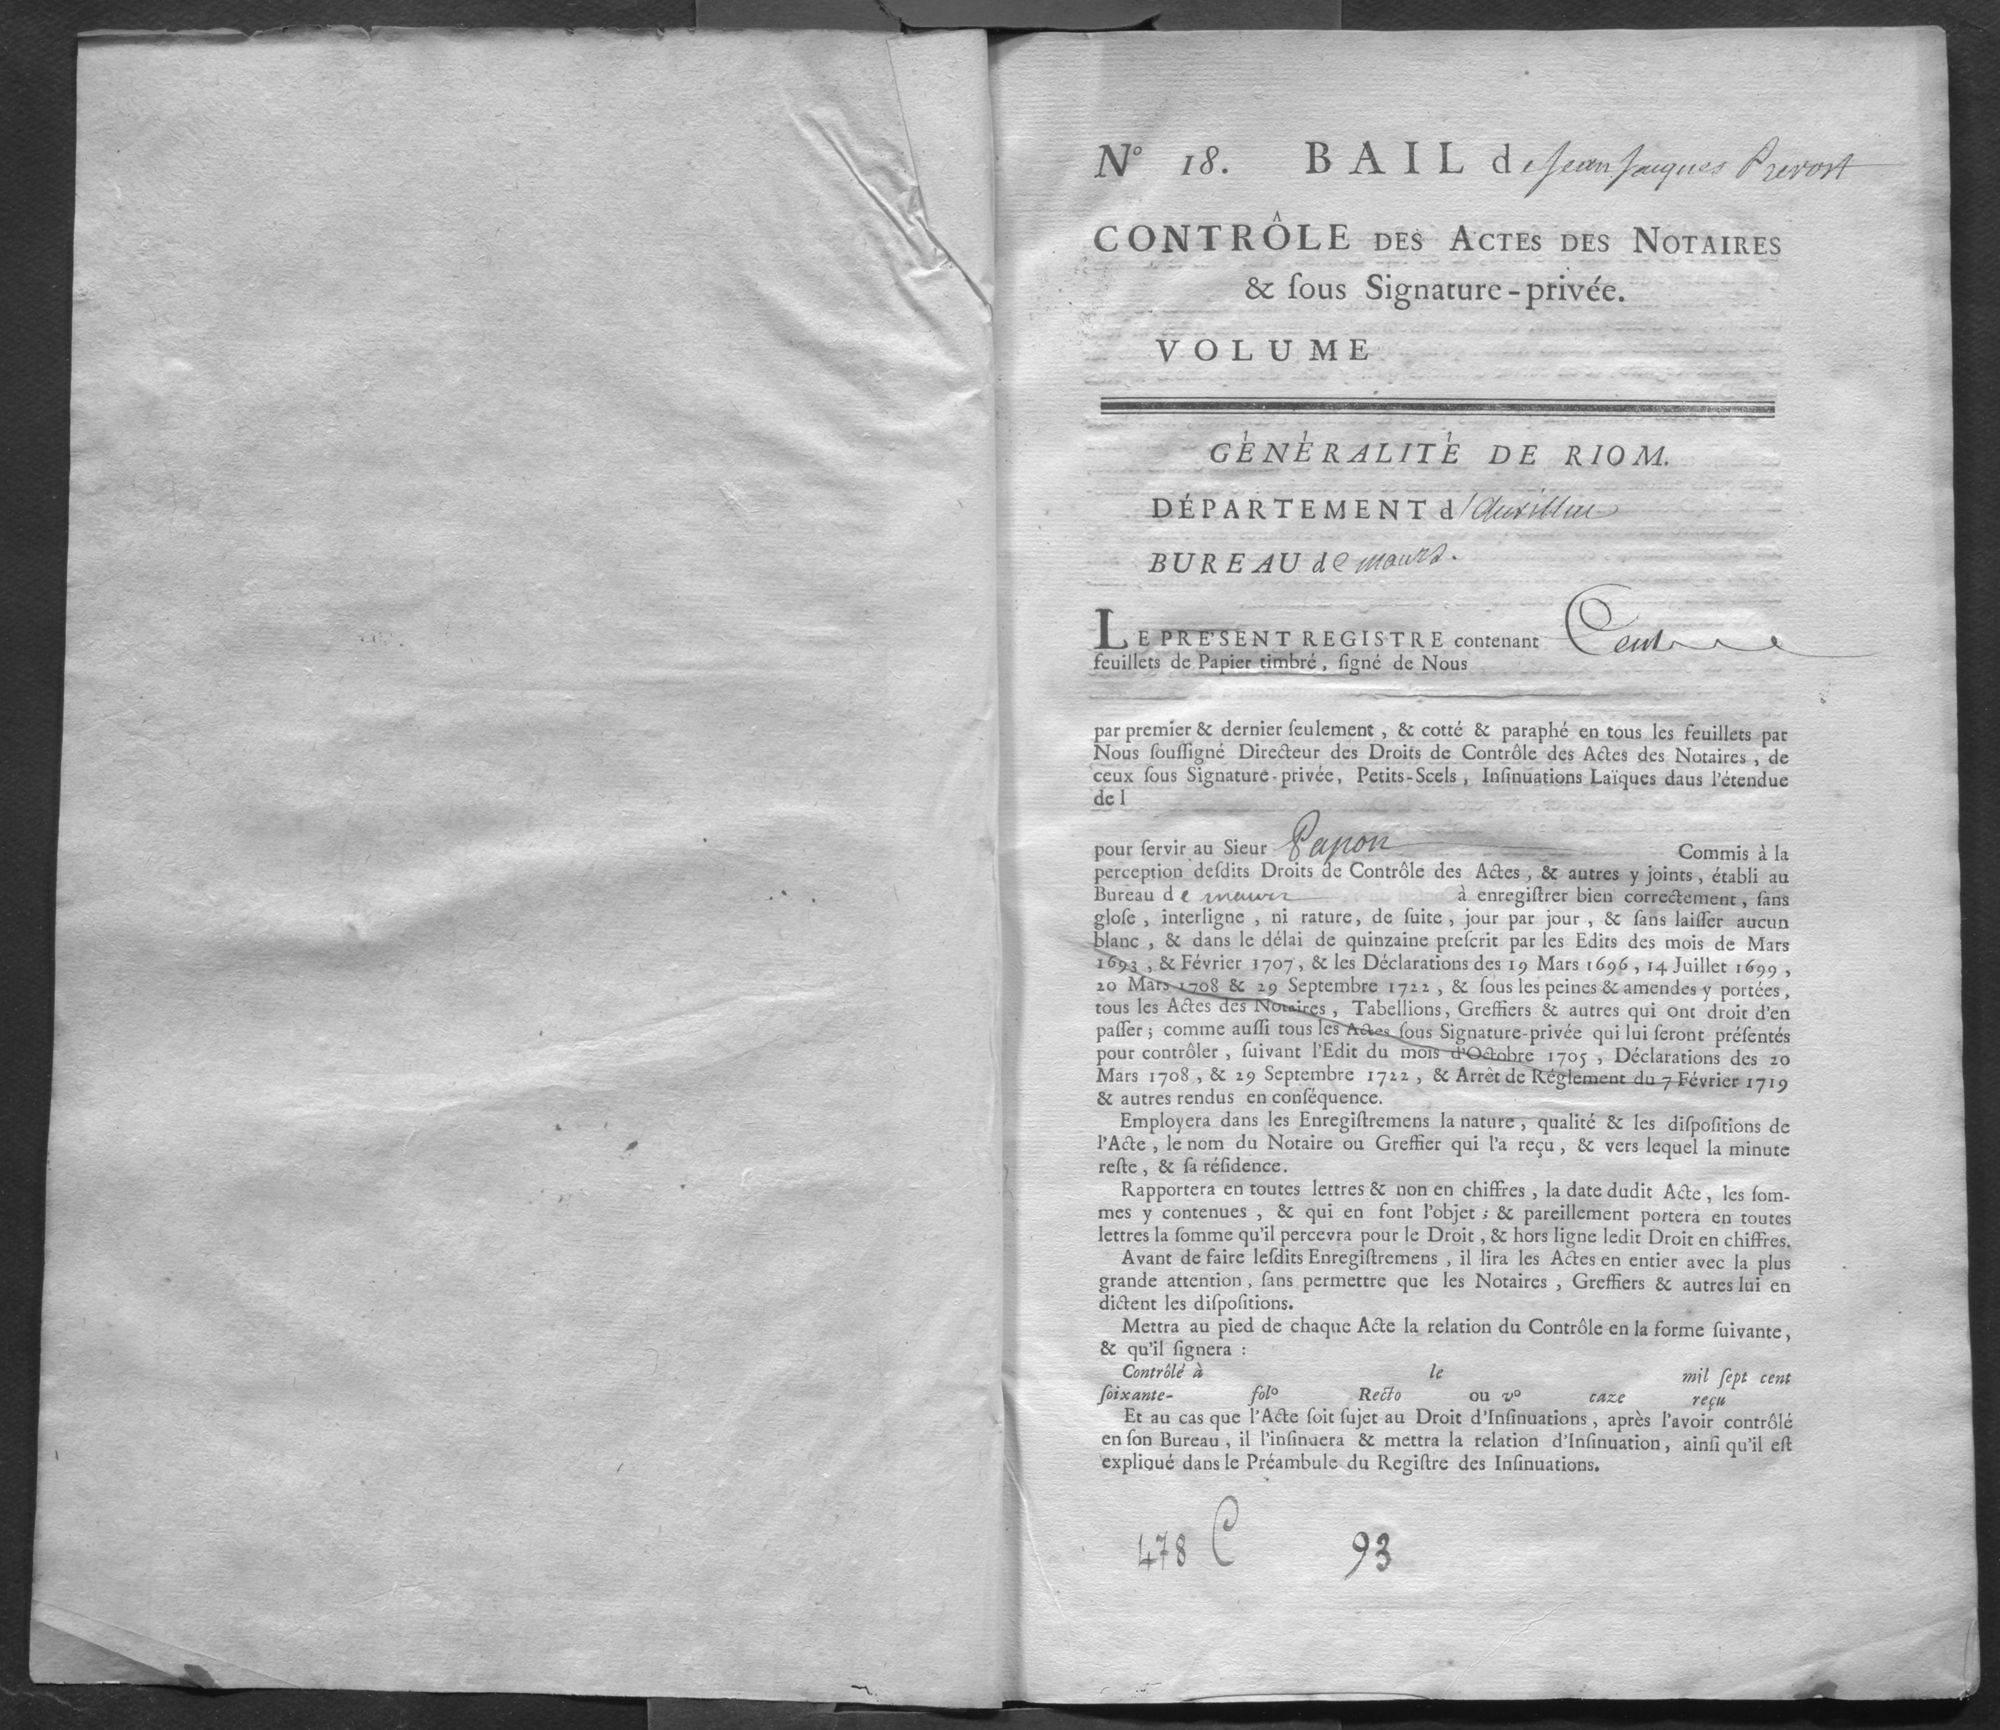 Nº 18. BAIL de Jean Jacques Prevost
CONTRÔLE DES ACTES DES NOTAIRES
& ſous Signature-privée.
VOLUME
GÉNÉRALITÉ DE RIOM.
DÉPARTEMENT d'Aurillac
BUREAU de maurs.
LE PRÉSENT REGISTRE contenant Cent
feuillets de Papier timbré, ſigné de Nous
par premier & dernier ſeulement, & cotté & paraphé en tous les feuillets par
Nous ſouſſigné Directeur des Droits de Contrôle des Actes des Notaires, de
ceux ſous Signature-privée, Petits-Scels, Inſinuations Laïques daus l'étendue
de l
pour ſervir au Sieur Papon Commis à la
perception deſdits Droits de Contrôle des Actes, & autres y joints, établi au
Bureau de maurs à enregiſtrer bien correctement, ſans
gloſe, interligne, ni rature, de ſuite, jour par jour, & ſans laiſſer aucun
blanc, & dans le délai de quinzaine preſcrit par les Edits des mois de Mars
1693, & Février 1707, & les Déclarations des 19 Mars 1696, 14 Juillet 1699,
20 Mars 1708 & 29 Septembre 1722, & ſous les peines & amendes y portées,
tous les Actes des Notaires, Tabellions, Greffiers & autres qui ont droit d'en
paſſer; comme auſſi tous les Actes ſous Signature-privée qui lui ſeront préſentés
pour contrôler, ſuivant l'Edit du mois d'Octobre 1705, Déclarations des 20
Mars 1708, & 29 Septembre 1722, & Arrêt de Réglement du 7 Février 1719
& autres rendus en conſéquence.
Employera dans les Enregiſtremens la nature, qualité & les diſpoſitions de
l'Acte, le nom du Notaire ou Greffier qui l'a reçu, & vers lequel la minute
reſte, & ſa réſidence.
Rapportera en toutes lettres & non en chiffres, la date dudit Acte, les ſom-
mes y contenues, & qui en font l'objet; & pareillement portera en toutes
lettres la ſomme qu'il percevra pour le Droit, & hors ligne ledit Droit en chiffres.
Avant de faire leſdits Enregiſtremens, il lira les Actes en entier avec la plus
grande attention, ſans permettre que les Notaires, Greffiers & autres lui en
dictent les diſpoſitions.
Mettra au pied de chaque Acte la relation du Contrôle en la forme ſuivante,
& qu'il ſignera :
Contrôlé à le mil ſept cent
ſoixante- folº Recto ou vº caze reçu
Et au cas que l'Acte ſoit ſujet au Droit d'Inſinuations, après l'avoir contrôlé
en ſon Bureau, il l'inſinuera & mettra la relation d'Inſinuation, ainſi qu'il eſt
expliqué dans le Préambule du Regiſtre des Inſinuations.
478 C 93